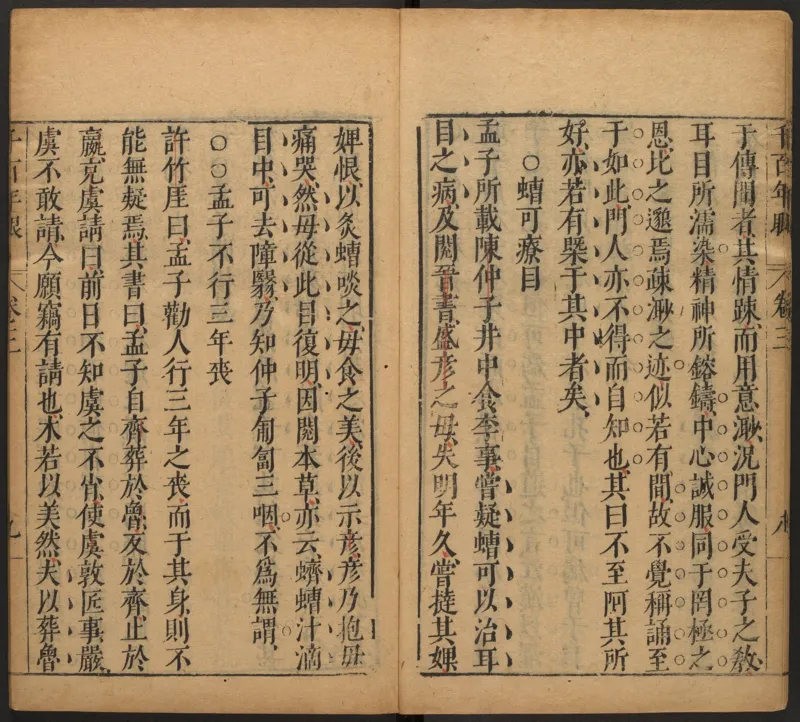 千百年眼 卷三 九
于傳聞者其情踈而用意渺況門人受夫子之教
耳目所濡染精神所鎔鑄中心誠服同于罔極之
恩比之邈焉疎渺之迹似若有間故不覺稱誦至
于如此門人亦不得而自知也其曰不至阿其所
好亦若有槩于其中者矣
○螬可療目
孟子所載陳仲子井中食李事嘗疑螬可以治耳
目之病及閱晉書盛彦之母失明年久嘗撻其婢
婢恨以灸螬啖之母食之美後以示彦彦乃抱母
痛哭然母從此目復明因閱本草亦云蠐螬汁滴
目中可去障翳乃知仲子匍匐三咽不爲無謂
○○孟子不行三年喪
許竹厓曰孟子勸人行三年之喪而于其身則不
能無疑焉其書曰孟子自齊葬於魯反於齊止於
嬴充虞請曰前日不知虞之不肖使虞敦匠事嚴
虞不敢請今願竊有請也木若以美然夫以葬魯
千百年眼 卷三 九